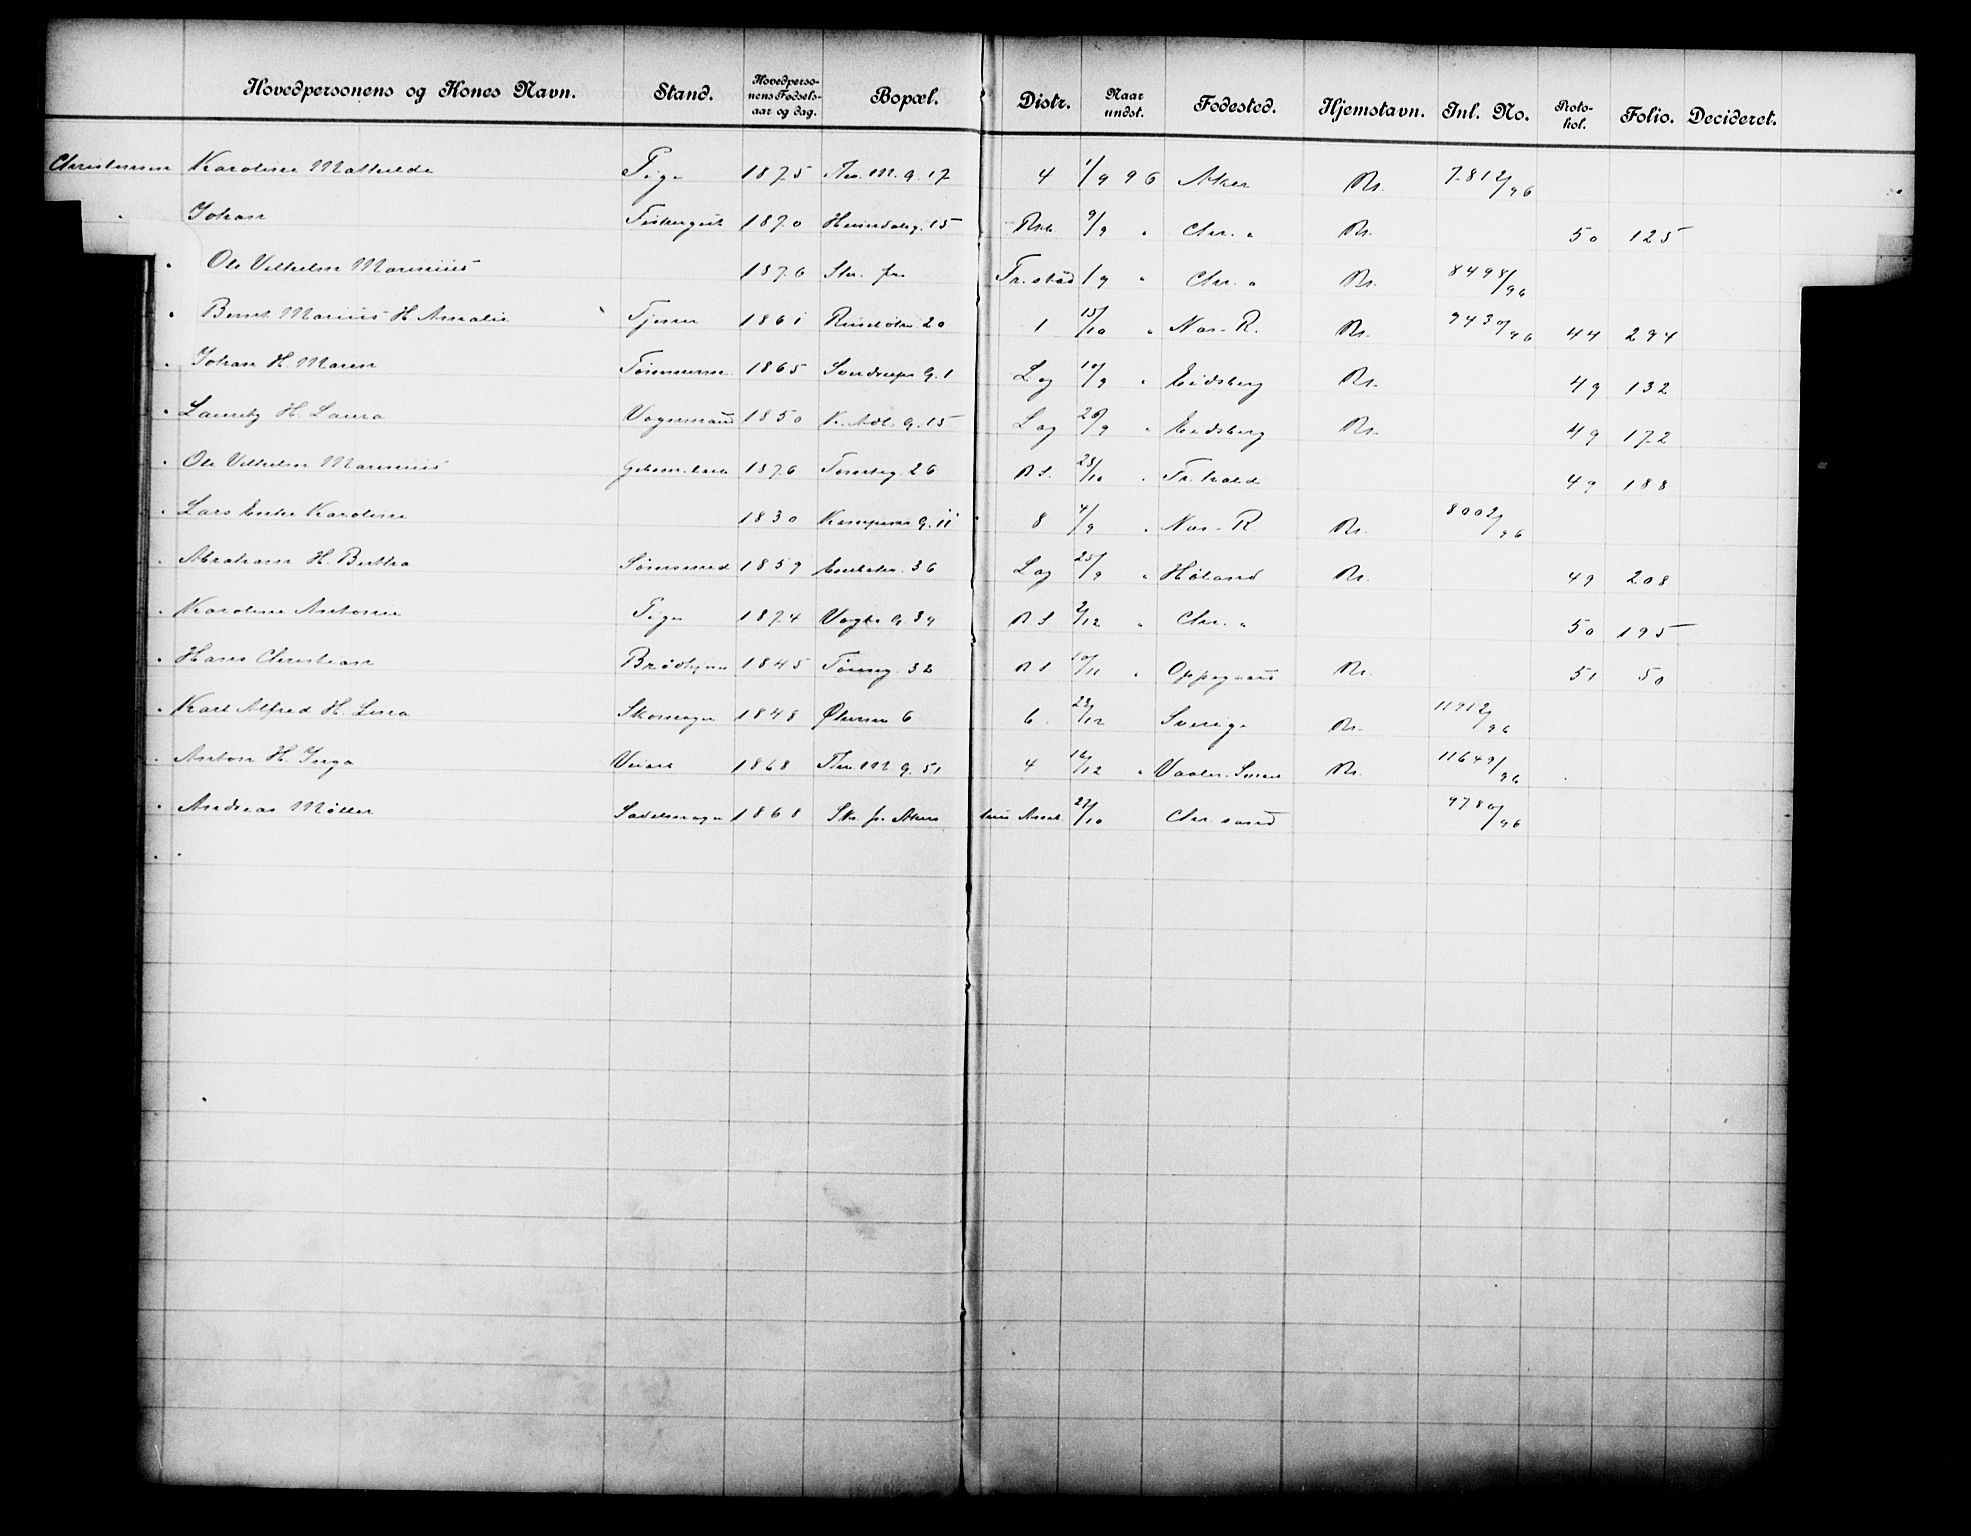 Hovedpersonens og Kones Navn. Stand. Hovedperso-nens Fødsels-aar og dag. Bopæl. Distr. Naar undst. Fødested. Hjemstavn. Inl. No. Proto-kol. Folio. Decideret.
Christensen Karoline Mathilde Pige 1875 Th. M. g. 17 4 1/9 96 Aker Kr. 7812/96
" Johan 1870 Heimdalsg. 15 9/9 " Chr. a Kr. 50 125
" Ole Vilhelm Marinius 1876 Str. fr. Fr.stad 1/9 " Chr. a Kr. 8498/96
" Bernt Marius H Amalie Tjener 1861 Ruseløkv 20 1 15/10 " Nas-R. Kr. 9430/96 44 294
" Johan H. Maren Tømmerm. 1865 Sverdrups G. 1 Lag 10/9 " Eidsberg Kr. 49 132
" Lauritz H. Laura Vognmand 1850 K. Adl. G. 15 Lag 20/9 " Eidsberg Kr. 49 172
" Ole Vilhelm Marinius 1876 Tomteg. 26 RS. 23/10 " Fr.hald 49 188
" Lars Enke Karoline 1830 Kampens G. 11 8 4/9 " Nas-R Kr. 8002/96
" Abraham H. Bertha Sømsmed 1859 36 Lag 25/9 " Høland Kr. 49 208
" Karoline Antonie Pige 1874 Vogts G. 39 RS 2/12 " Chr. a 50 195
" Hans Christian 1845 Tøieng. 32 RS 10/11 " Oppegaard Kr. 51 50
" Karl Alfred H. Lina Skomager 1848 6 6 22/12 Sverige Kr. 11912/96
" Anton H. Inga Visert 1868 Thv. M. G. 51 4 16/12 " Vaaler. Smaal Kr. 11649/96
" Andreas Møller Sadelmager 1868 Str. fr. Akers hus Anst. 22/10 Chr.sand 9780/96